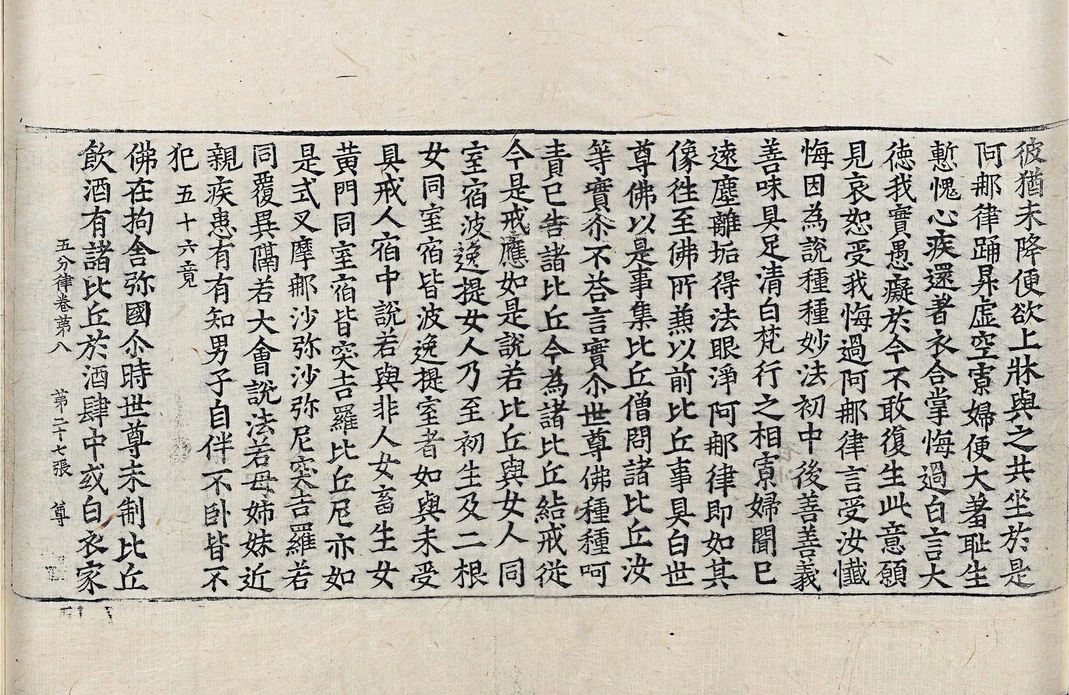 彼猶未降便欲上牀與之共坐於是
阿那律踊昇虛空寡婦便大羞耻生
慙愧心疾還著衣合掌悔過白言大
徳我實愚癡於今不敢復生此意願
見哀恕受我悔過阿那律言受汝懴
悔因為說種種妙法初中後善善義
善味具足清白梵行之相寡婦聞已
遠塵離垢得法眼淨阿那律即如其
像徃至佛所燕以前比丘事具白世
尊佛以是事集比丘僧問諸比丘汝
等實尒不荅言實尒世尊佛種種呵
責已告諸比丘今為諸比丘結戒從
今是戒應如是說若比丘與女人同
室宿波逸提女人乃至初生及二根
女同室宿皆波逸提室者如與未受
具戒人宿中說若與非人女畜生女
黃門同室宿皆突吉羅比丘尼亦如
是式叉摩那沙弥沙弥尼突吉羅若
同覆異隔若大會說法若母姉妹近
親疾患有有知男子自伴不卧皆不
犯五十六竟
佛在拘舍弥國尒時世尊未制比丘
飲酒有諸比丘於酒肆中或白衣家
五分律卷第八 第二十七張 尊